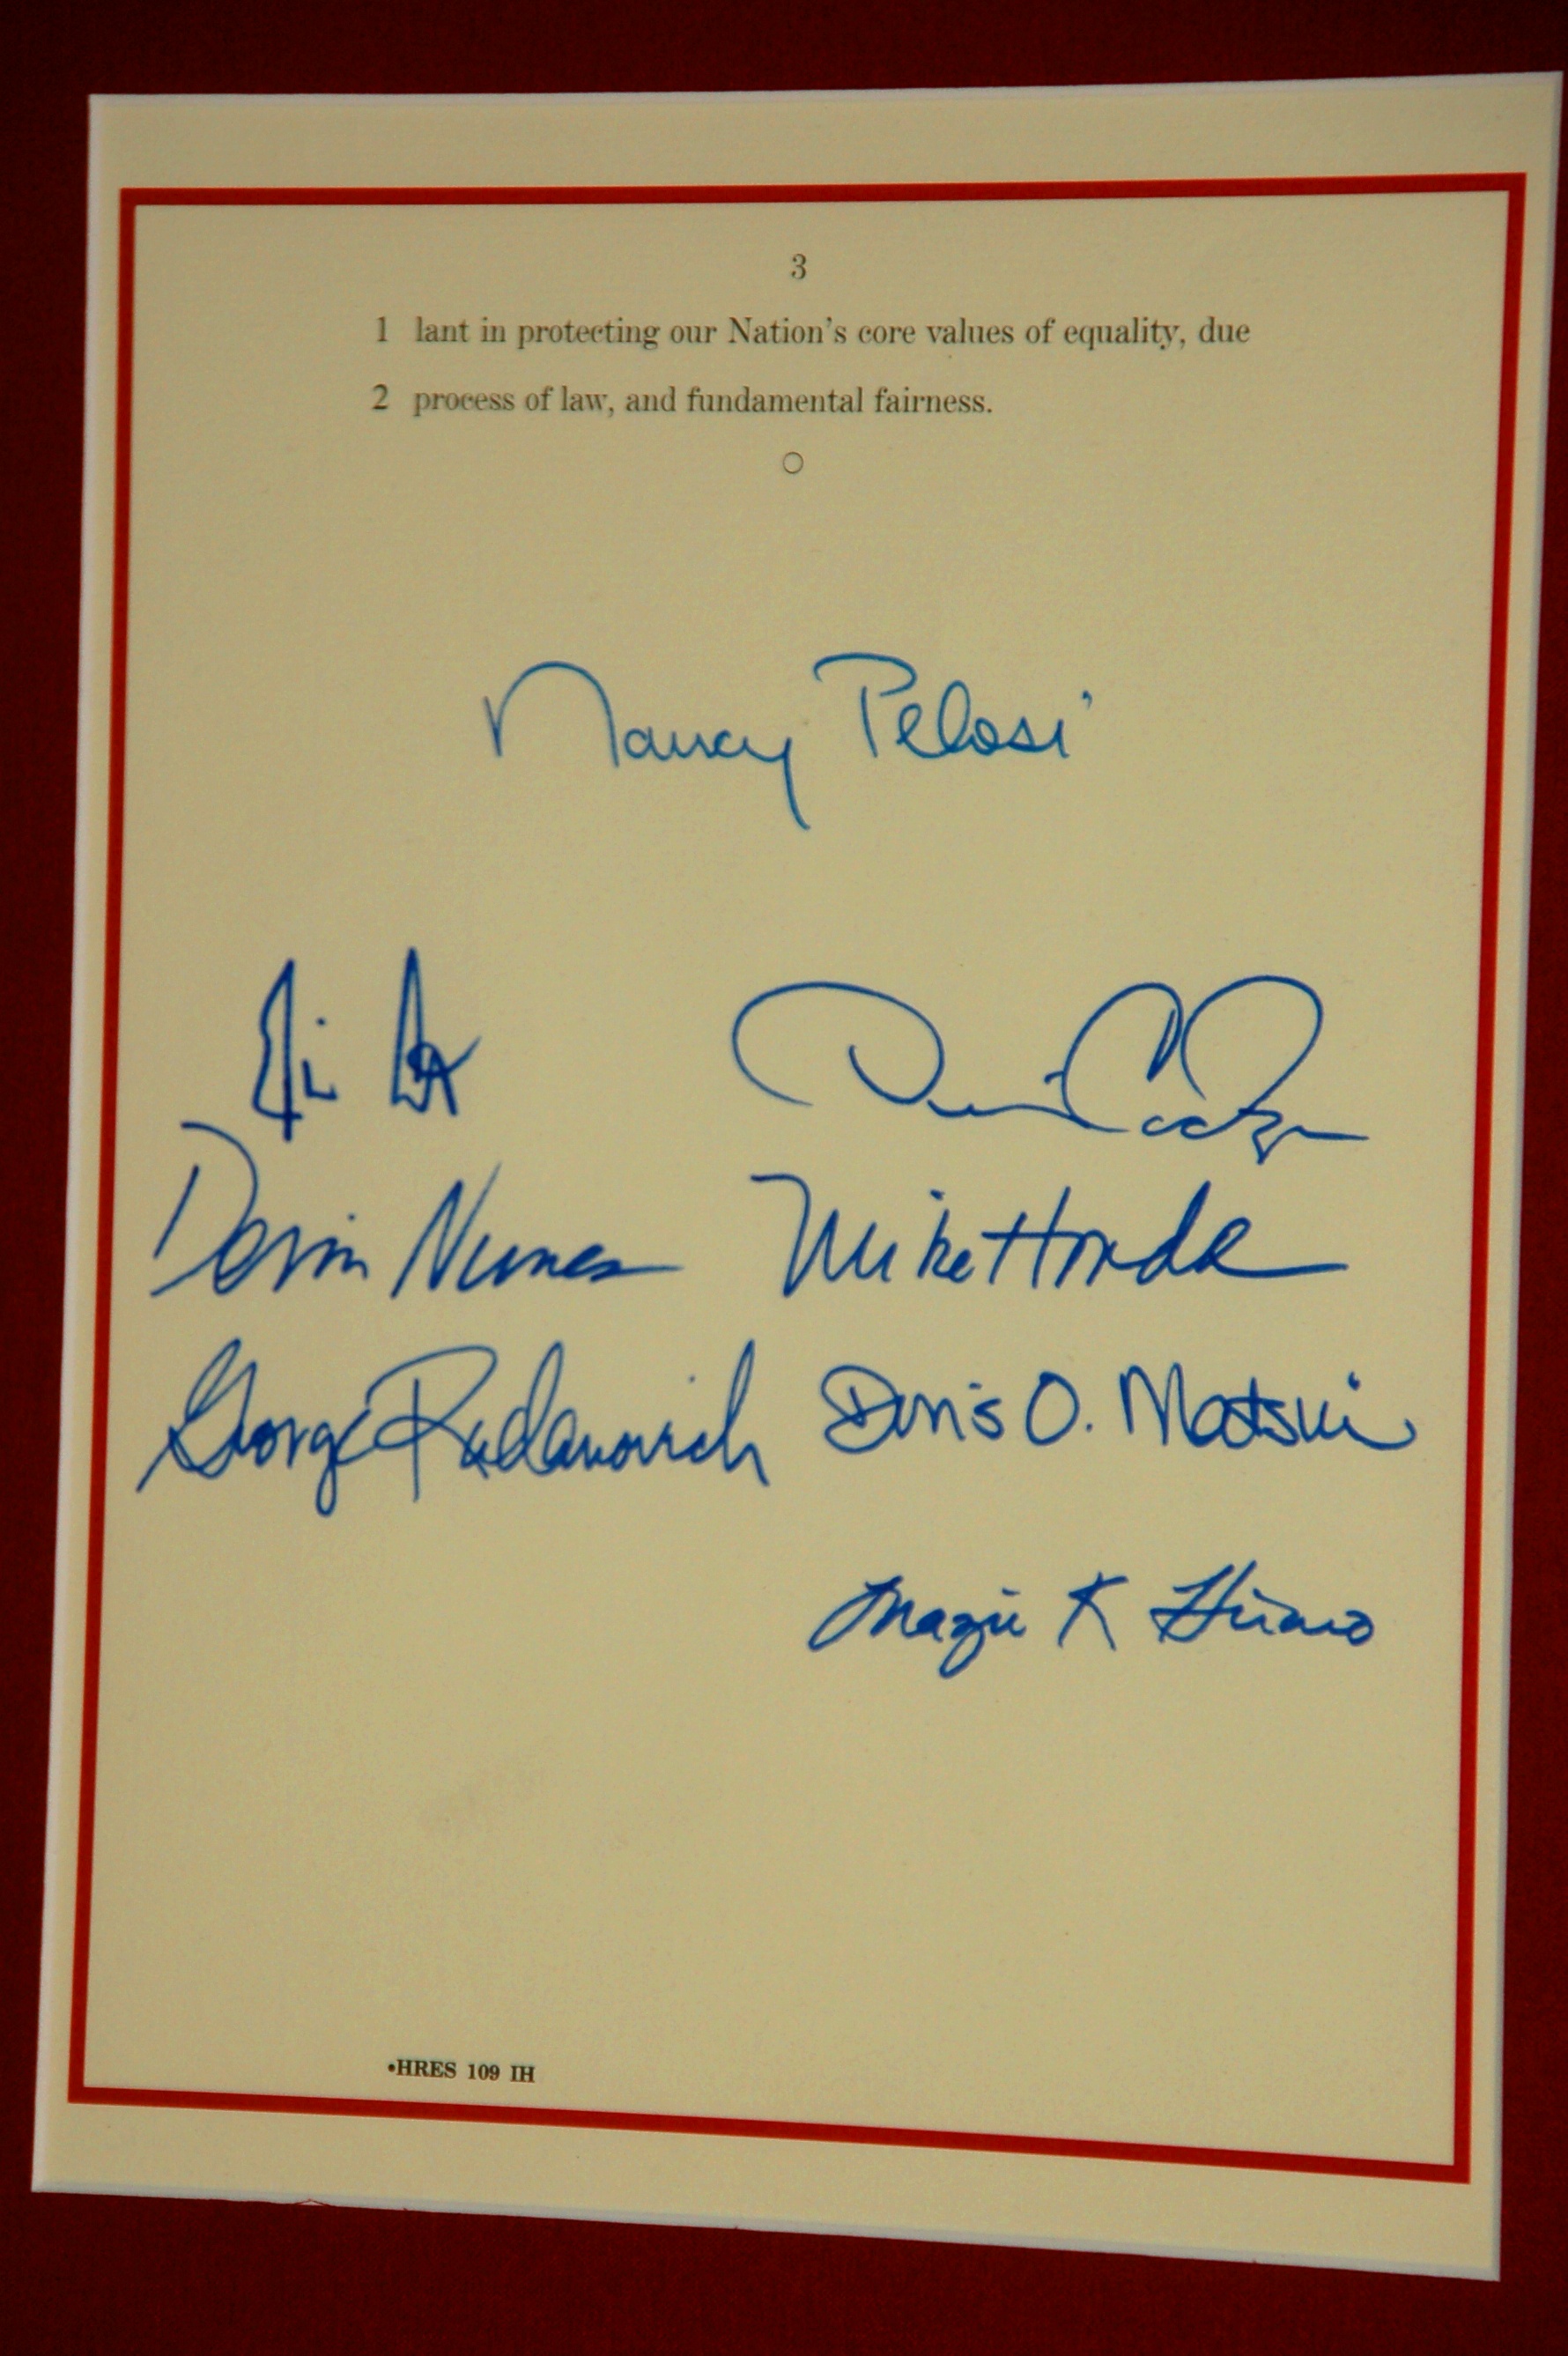 3
1 lant in protecting our Nation's core values of equality, due
2 process of law, and fundamental fairness.
Nancy Pelosi
Jim
Devin Nunes Mike Honda
George Radanovich Doris O. Matsui
Mazie K Hirono
•HRES 109 IH